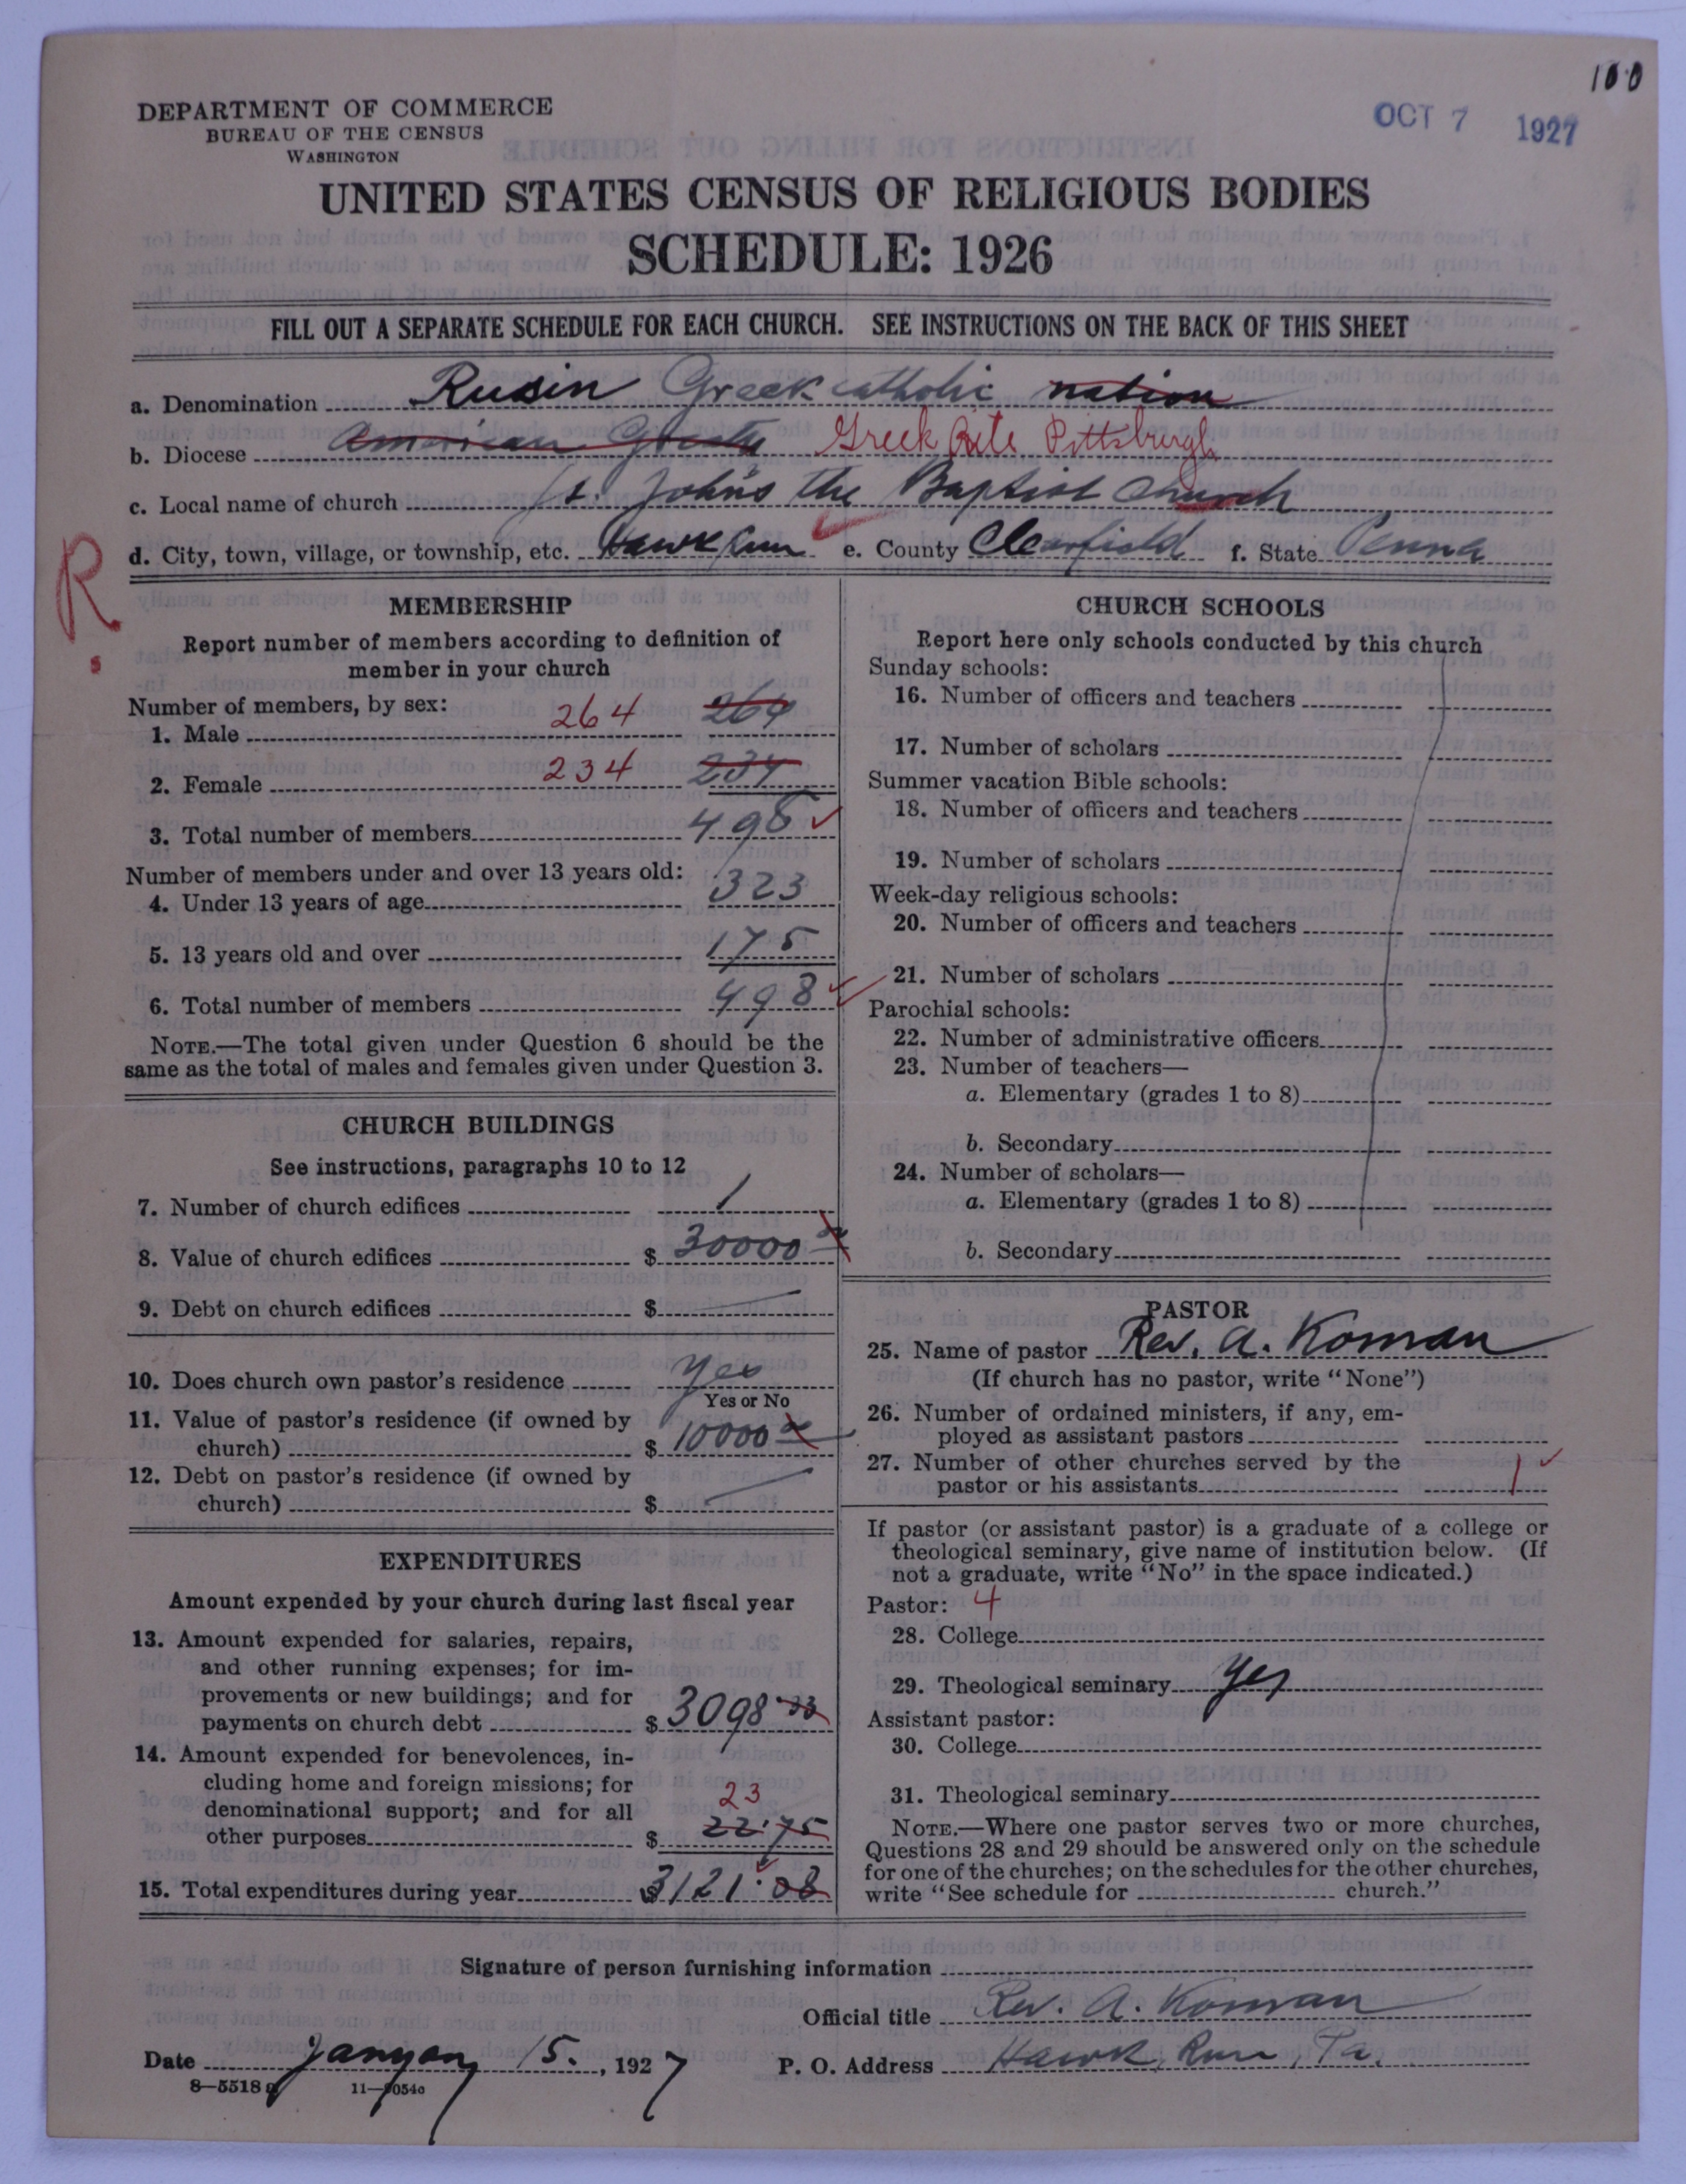 100
OCT 7 1927
DEPARTMENT OF COMMERCE
BUREAU OF THE CENSUS
WASHINGTON
UNITED STATES CENSUS OF RELIGIOUS BODIES
SCHEDULE: 1926
FILL OUT A SEPARATE SCHEDULE FOR EACH CHURCH. SEE INSTRUCTIONS ON THE BACK OF THIS SHEET
a. Denomination Rusin Greek catholic nation
b. Diocese American Greek Rite Pittsburgh
c. Local name of church St. John's the Baptist Church
d. City, town, village, or township, etc. Hawk Run e. County Clearfield f. State Penna
R.
MEMBERSHIP
Report number of members according to definition of
member in your church
Number of members, by sex:
1. Male 264 264
2. Female 234 234
3. Total number of members 498
Number of members under and over 13 years old:
4. Under 13 years of age 323
5. 13 years old and over 175
6. Total number of members 498
NOTE.—The total given under Question 6 should be the
same as the total of males and females given under Question 3.
CHURCH BUILDINGS
See instructions, paragraphs 10 to 12
7. Number of church edifices 1
8. Value of church edifices $ 30000
9. Debt on church edifices $ —
10. Does church own pastor's residence yes
Yes or No
11. Value of pastor's residence (if owned by
church) $ 10000
12. Debt on pastor's residence (if owned by
church) $ —
EXPENDITURES
Amount expended by your church during last fiscal year
13. Amount expended for salaries, repairs,
and other running expenses; for im-
provements or new buildings; and for
payments on church debt $ 3098.33
14. Amount expended for benevolences, in-
cluding home and foreign missions; for
denominational support; and for all 23
other purposes $ 22.75
15. Total expenditures during year $ 3121.08
CHURCH SCHOOLS
Report here only schools conducted by this church
Sunday schools:
16. Number of officers and teachers
17. Number of scholars
Summer vacation Bible schools:
18. Number of officers and teachers
19. Number of scholars
Week-day religious schools:
20. Number of officers and teachers
21. Number of scholars
Parochial schools:
22. Number of administrative officers
23. Number of teachers—
a. Elementary (grades 1 to 8)
b. Secondary
24. Number of scholars—
a. Elementary (grades 1 to 8)
b. Secondary
PASTOR
25. Name of pastor Rev. A. Koman
(If church has no pastor, write "None")
26. Number of ordained ministers, if any, em-
ployed as assistant pastors
27. Number of other churches served by the
pastor or his assistants 1
If pastor (or assistant pastor) is a graduate of a college or
theological seminary, give name of institution below. (If
not a graduate, write "No" in the space indicated.)
Pastor: 4
28. College
29. Theological seminary Yes
Assistant pastor:
30. College
31. Theological seminary
NOTE.—Where one pastor serves two or more churches,
Questions 28 and 29 should be answered only on the schedule
for one of the churches; on the schedules for the other churches,
write "See schedule for church."
Signature of person furnishing information
Official title Rev. A. Koman
Date January 15., 1927 P. O. Address Hawk Run, Pa.
8—5518 a 11—9054a